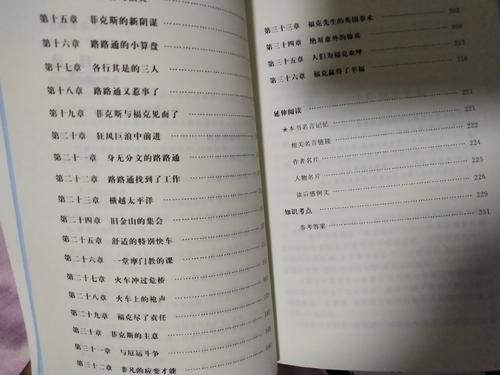 第十五章 菲克斯的新阴谋
第十六章 路路通的小算盘
第十七章 各行其是的三人
第十八章 路路通又惹事了
第十九章 菲克斯与福克见面了
第二十章 狂风巨浪中前进
第二十一章 身无分文的路路通
第二十二章 路路通找到了工作
第二十三章 横越太平洋
第二十四章 旧金山的集会
第二十五章 舒适的特别快车
第二十六章 一堂摩门教的课
第二十七章 火车冲过危桥
第二十八章 火车上的枪声
第二十九章 福克尽了责任
第三十章 菲克斯的主意
第三十一章 与厄运斗争
第三十二章 非凡的应变才能
第三十三章 福克先生的英国拳术 202
第三十四章 绝对意外的惊喜
第三十五章 人们为福克欢呼
第三十六章 福克赢得了幸福
延伸阅读 221
★本书名言记忆 221
相关名言链接 222
作者名片 224
人物名片 225
读后感例文 226
知识考点 229
参考答案 231